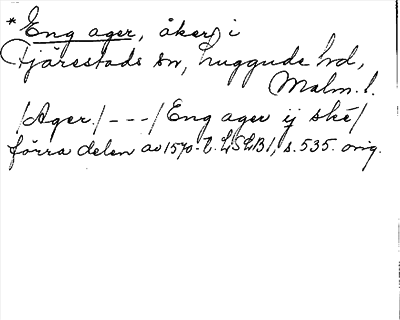 *Eng ager, åker i
Fjärestads sn, Luggude hd,
Malm. l.
/Ager./ - - - /Eng ager ij ské/
förra delen av 1570-t. LSLB 1, s. 535. orig.